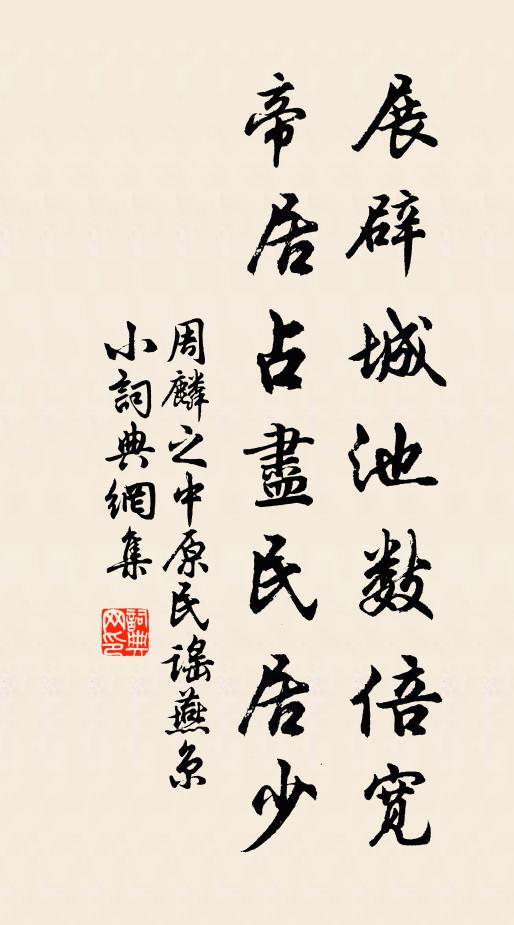 展辟城池数倍寬
帝居占盡民居少
周麟之中原民謠燕京
小詞典網集
詞典網印